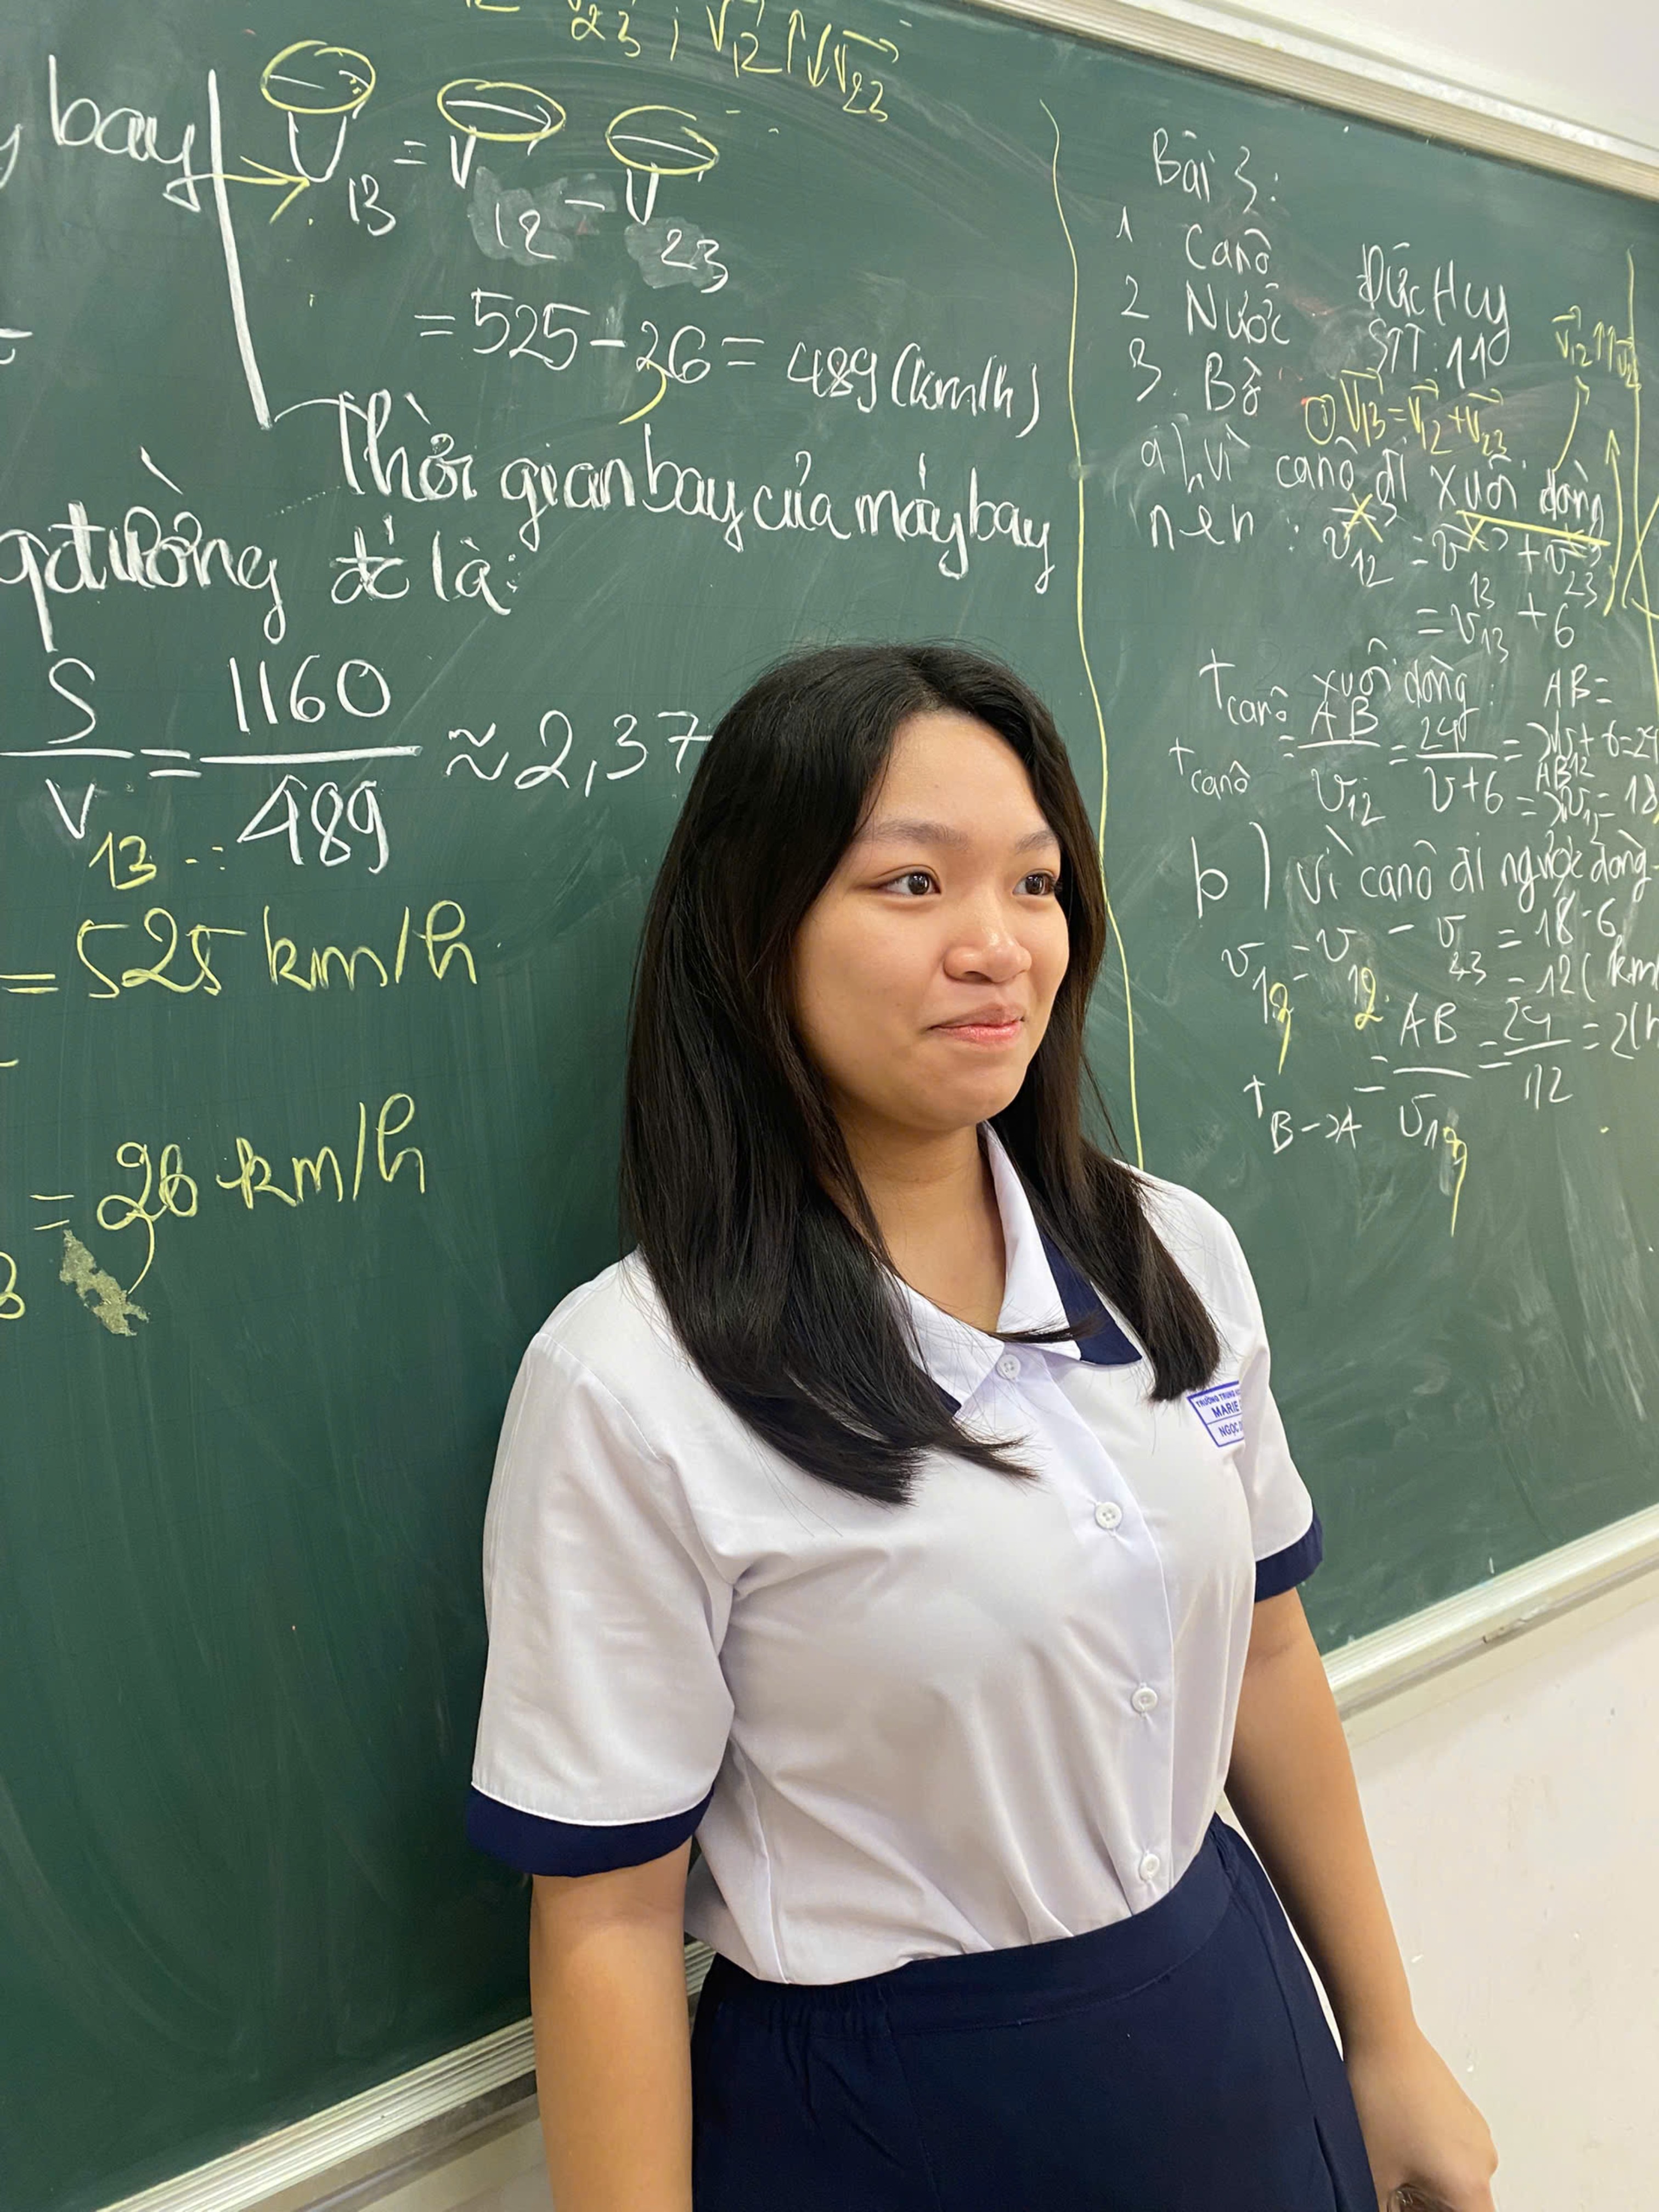 23 ; v⃗12 ↑↓ v⃗23
bay
v13 = v12 - v23
= 525 - 36 = 489 (km/h)
Thời gian bay của máy bay
đường đó là:
S/v13 = 1160/489 ≈ 2,37
= 525 km/h
= 36 km/h
Bài 3:
1 Canô
2 Nước
3. Bờ
Đức Huy
STT: 11
① v⃗13 = v⃗12 + v⃗23
v⃗12 ↑↑
a), vì canô đi xuôi dòng
nên : v12 = v13 + v23
= v13 + 6
t canô xuôi dòng: AB =
t canô = AB/v12 = 24/v+6
b) vì canô đi ngược dòng
= 18 - 6
= 12 (km
t B→A = AB/v13 = 24/12 = 2(h
TRƯỜNG TRUNG
MARIE
NGỌC